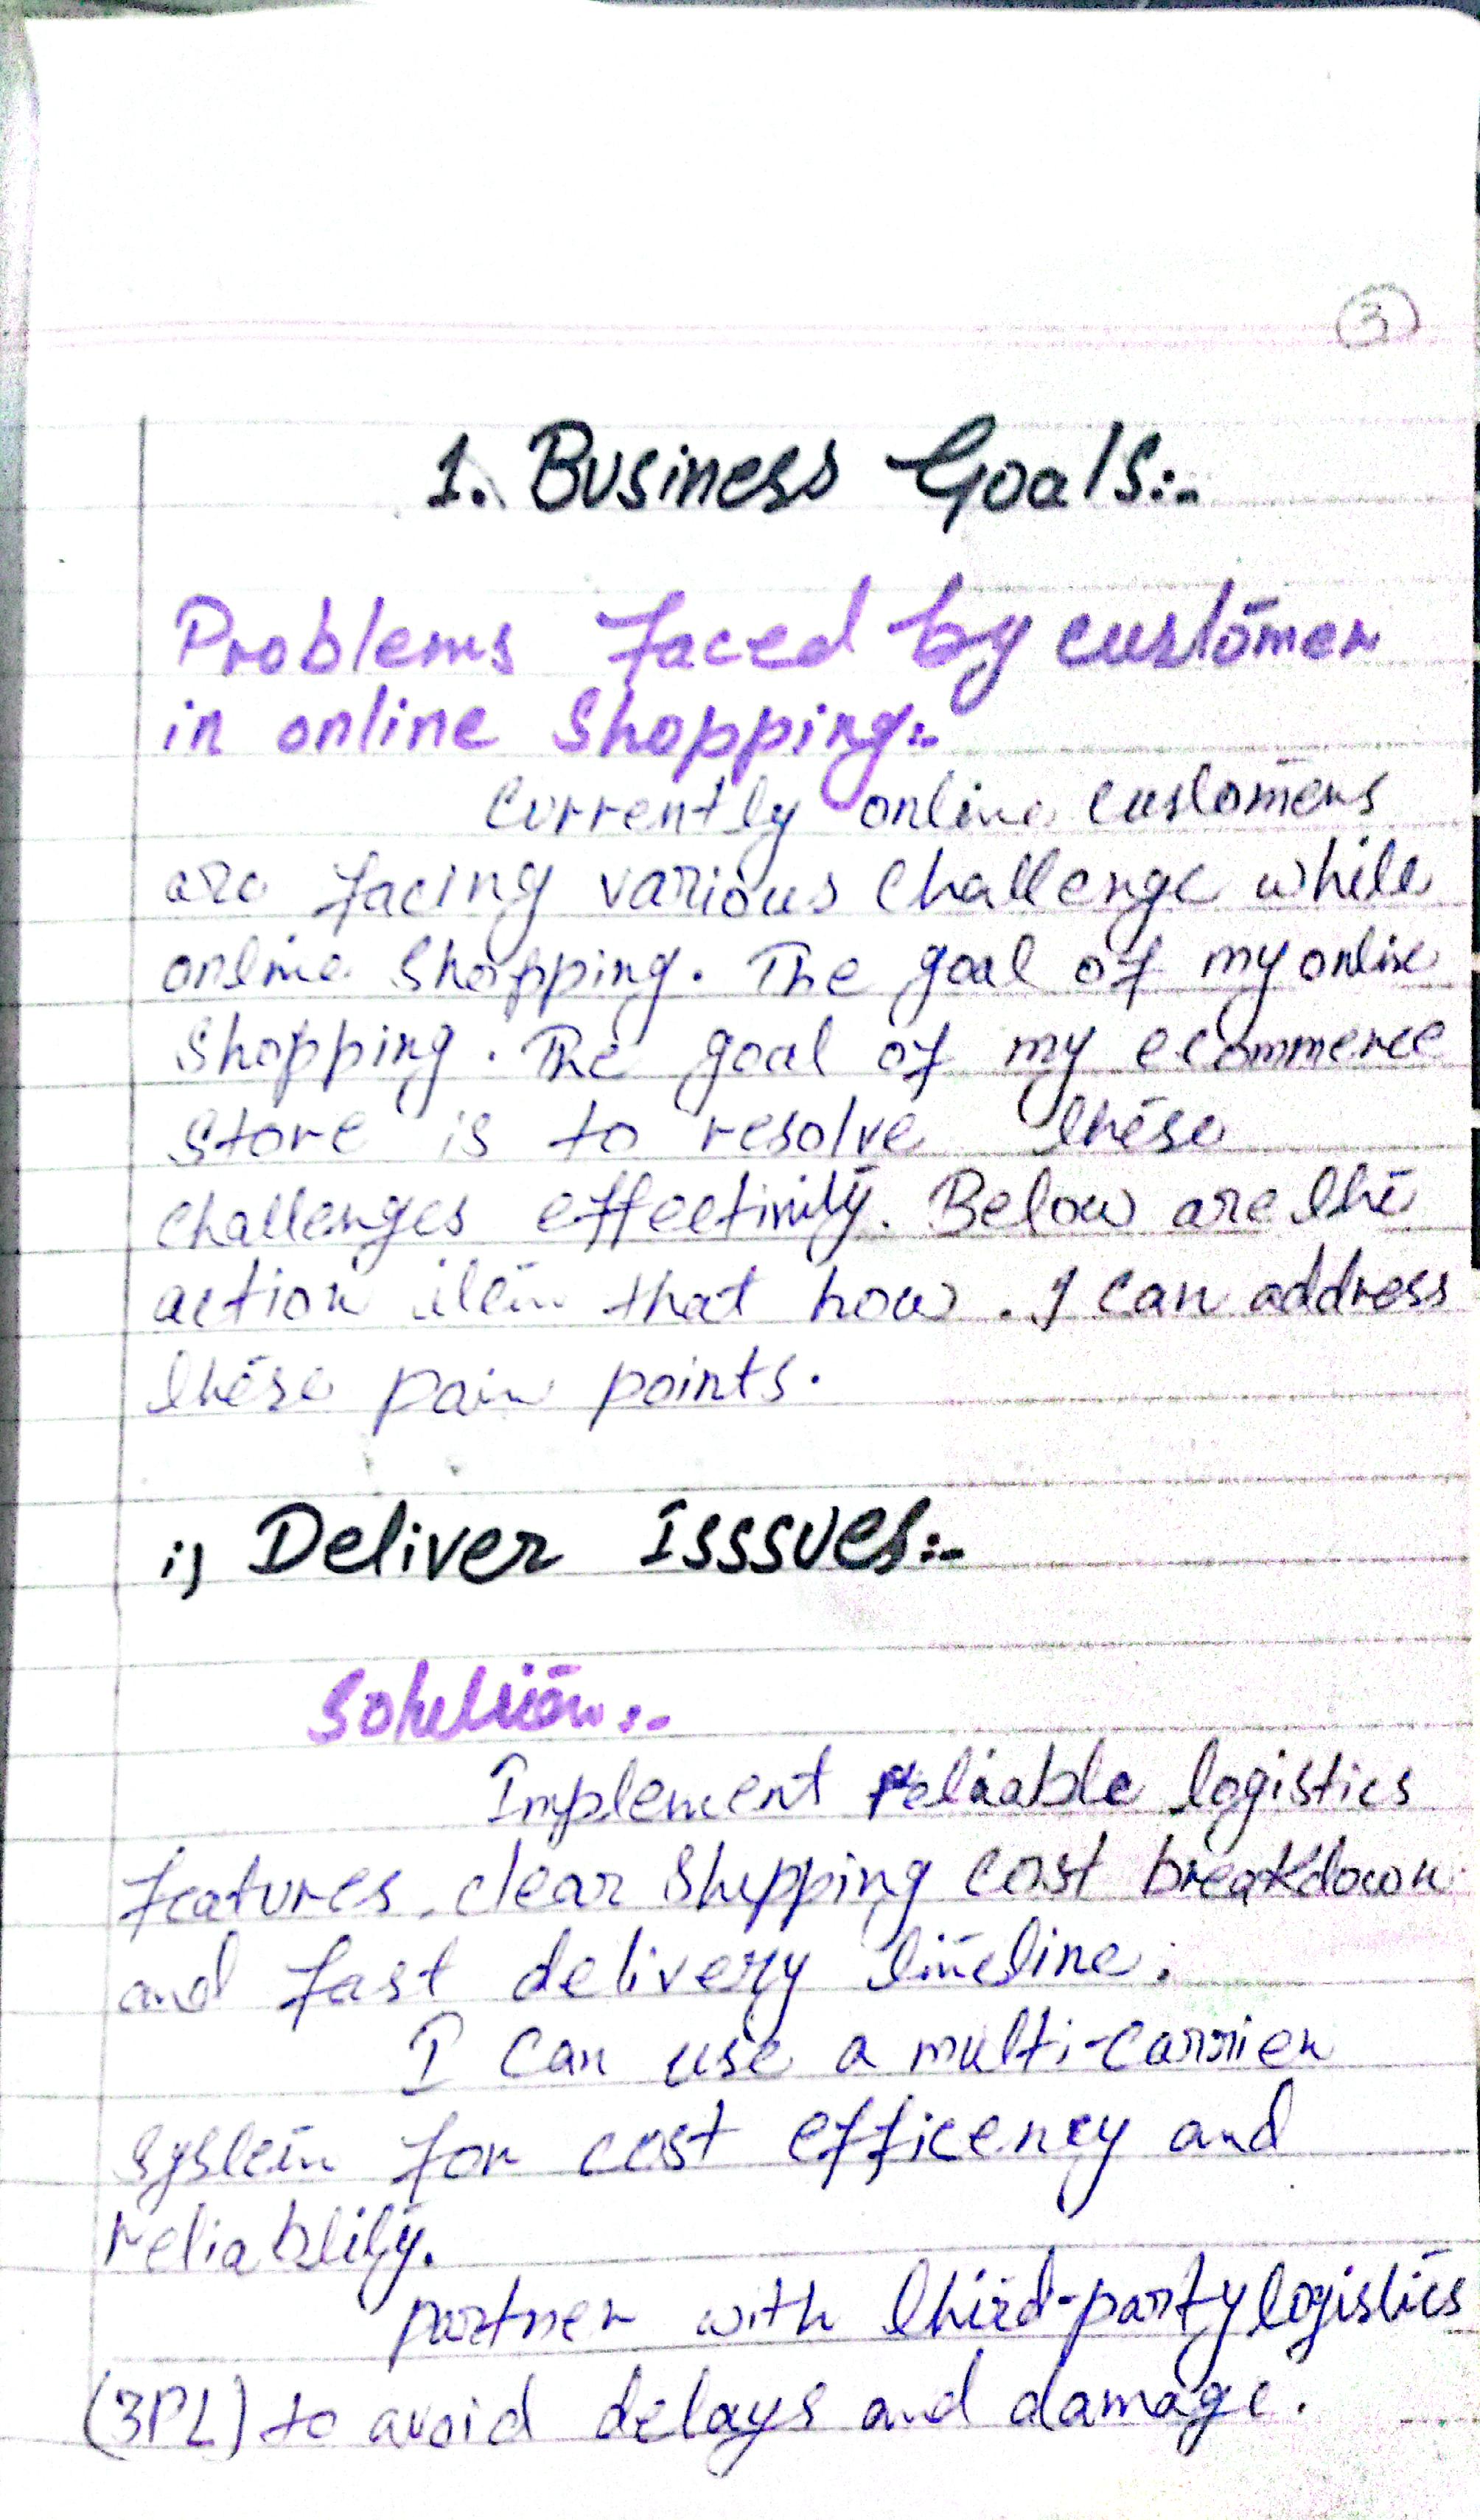 3
1. Business Goals:-
Problems faced by customer
in online shopping:-
Currently online customers
are facing various challenge while
online shopping. The goal of my online
shopping. The goal of my ecommerce
store is to resolve these
challenges effectivily. Below are the
action item that how. I can address
these pain points.
i) Deliver Isssues:-
Solution:-
Implement reliable logistics
features, clear shipping cost breakdown
and fast delivery timeline.
I can use a multi-carrier
system for cost efficency and
reliablity.
partner with third-party logistics
(3PL) to avoid delays and damage.